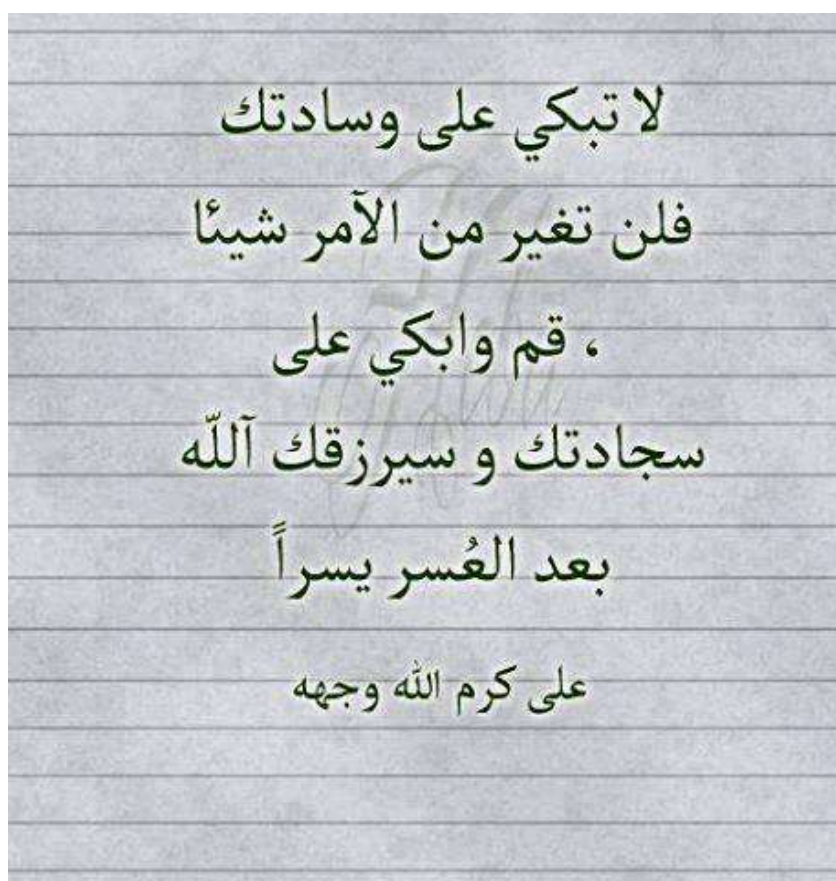 لا تبكي على وسادتك
فلن تغير من الآمر شيئا
، قم وابكي على
سجادتك و سيرزقك آللّه
بعد العُسر يسراً
على كرم الله وجهه